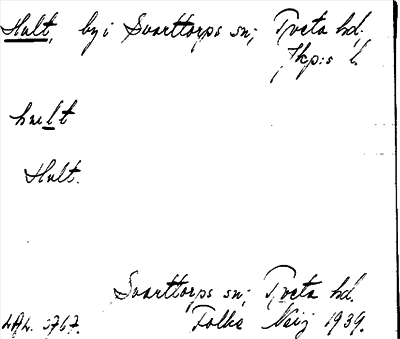 Hult, by i Svarttorps sn; Tveta hd.
Jkp:s l.
hult
Hult.
Svarttorps sn; Tveta hd.
Folke 1939.